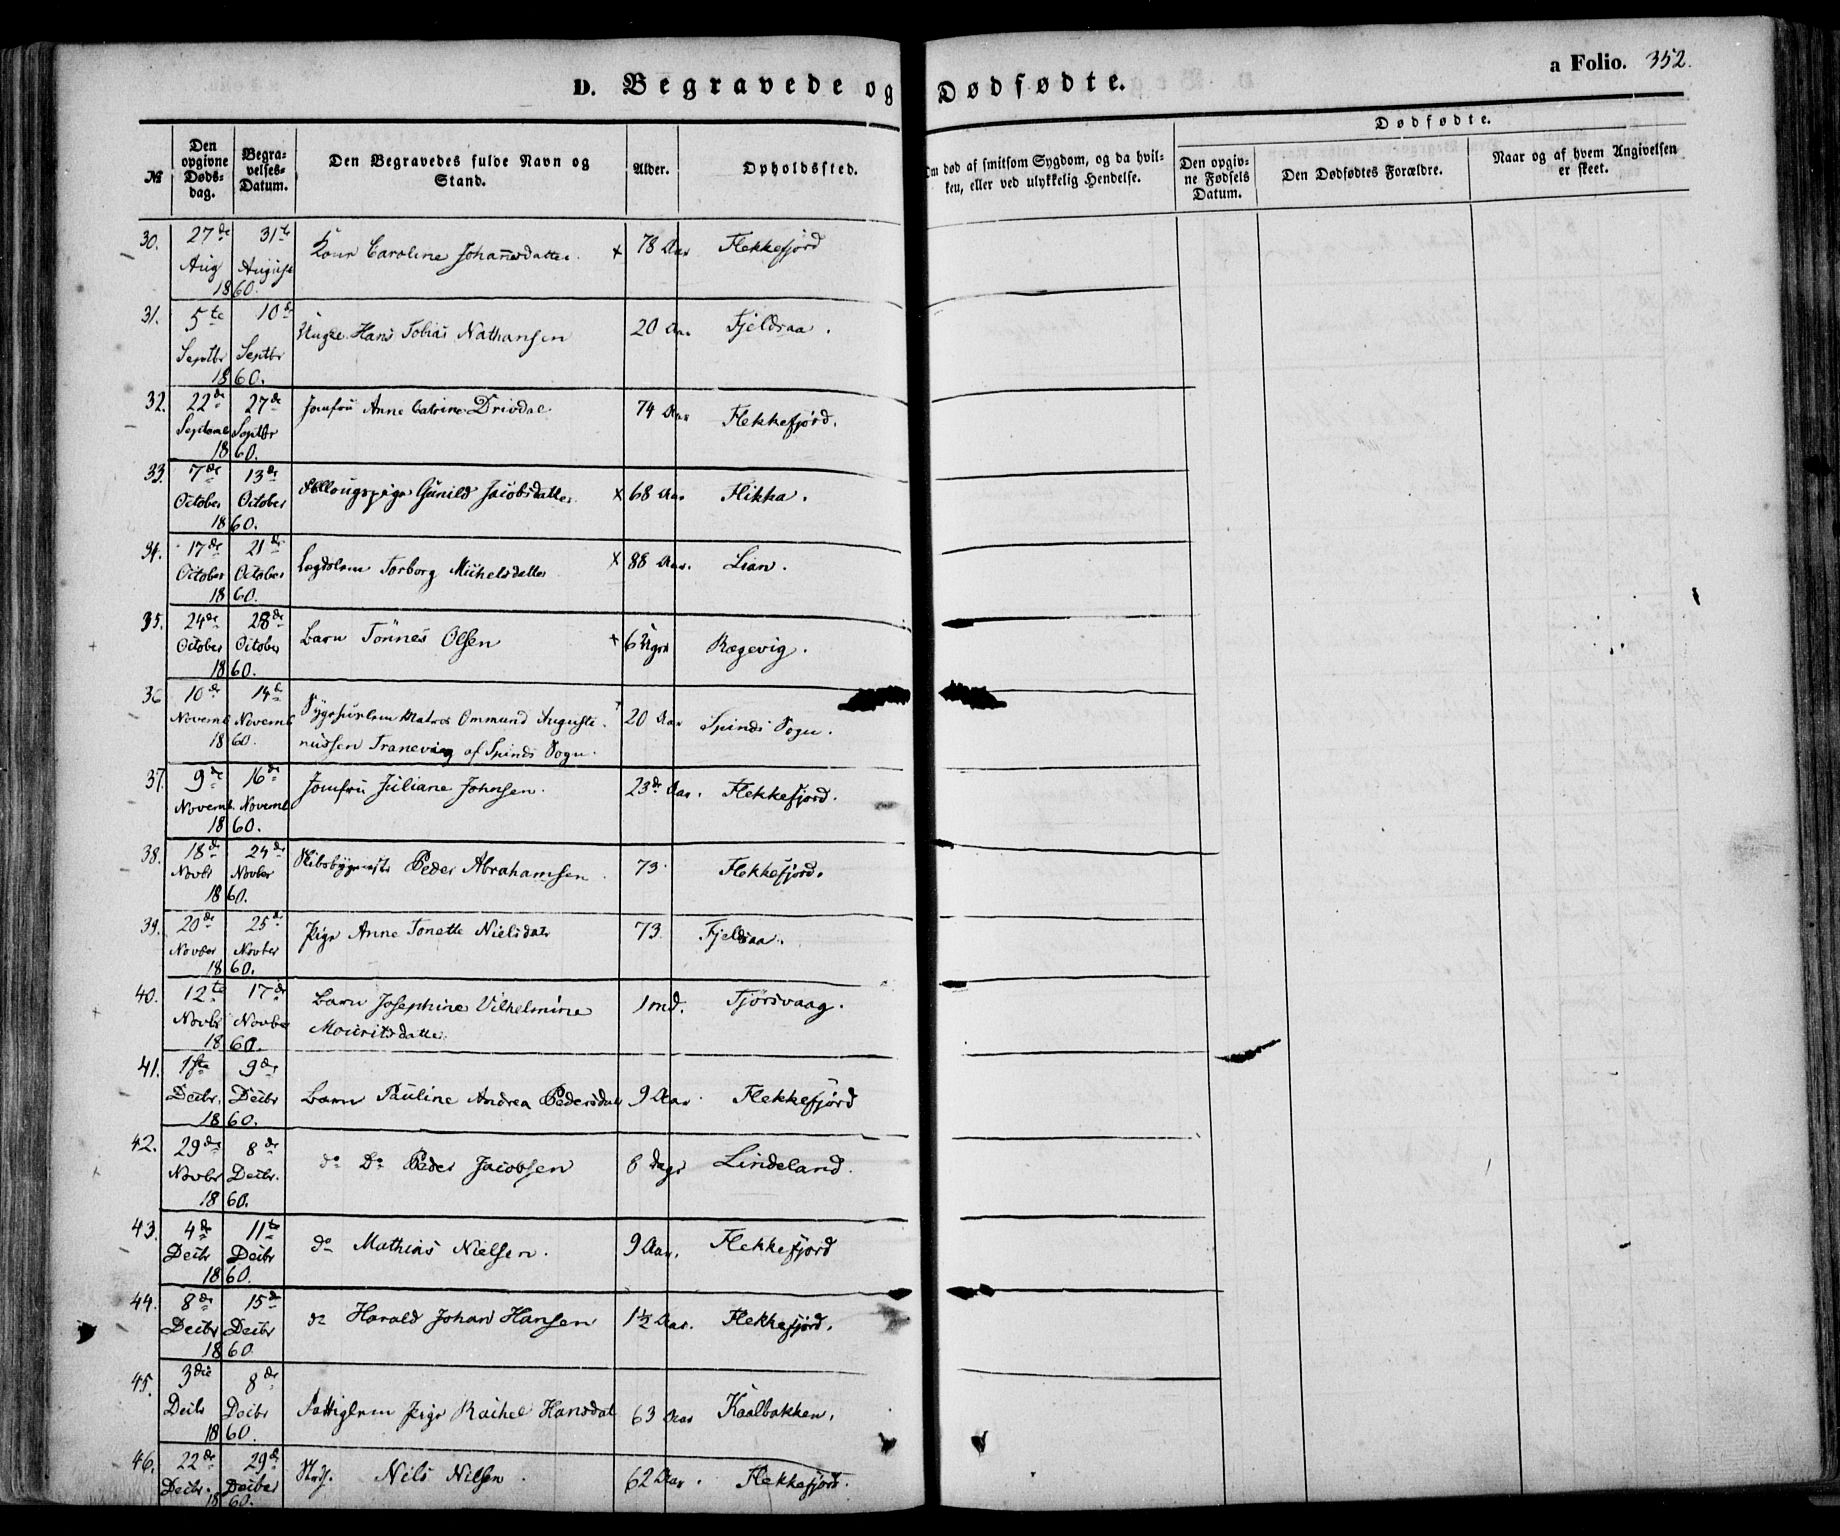 D. Begravede og Dødfødte.
a Folio. 352.
Dødfødte.
№ | Den opgivne Dødsdag. | Begravelses-Datum. | Den Begravedes fulde Navn og Stand. | Alder. | Opholdssted. | Om død af smitsom Sygdom, og da hvilken, eller ved ulykkelig Hendelse. | Den opgivne Fødsels Datum. | Den Dødfødtes Forældre. | Naar og af hvem Angivelsen er skeet.
30. 27de Aug 31te August 1860. Kone Caroline Johannesdatter. × 78 Aar Flekkefjord
31. 5te Septbr 10de Septbr 1860. Ungk. Hans Tobias Nathansen 20 Aar Fjeldsaa.
32. 22de Septemb 27de Septbr 1860. Jomfru Anne Catrine Drivdal 74 Aar Flekkefjord.
33. 7de October 13de October 1860. Gunild Jacobsdatter × 68 Aar Flikka.
34. 17de October 21de October 1860. Lægdslem Torborg Michelsdatter × 88 Aar. Lian.
35. 24de October 28de October 1860. Barn Tönnes Olsen + 6 Uger Rægevig.
36 10de Novemb 14de Novemb 1860. Matros Ommund Augusti-
nussen Tranevaag af Spinds Sogn. 20 Aar Spinds Sogn.
37. 9de Novemb. 16de Novemb 1860. Jomfru Juliane Johnsen. 23de Aar. Flekkefjord.
38. 18de Novbr 24de Novber 1860. Skibsbygmester Peder Abrahamsen. 73 Flekkefjord.
39. 20de Novber 25de Novber 1860. Pige Anne Tonette Nielsdatr 73. Fjeldsaa.
40. 12te Novbr 17de Novber 1860. Barn Josephine Vilhelmine
Mouritsdatter. 1 md. Fjörsvaag.
41. 1ste Decbr. 9de Decbr 1860. Barn Pauline Andrea Pedersdatr 9 Aar. Flekkefjörd
42. 29de Novbr 8de Decbr. 1860. do Do Peder Jacobsen 8 dage Lindeland.
43. 4de Decbr 11te Decbr 1860. do Mathias Nielsen. 9 Aar. Flekkefjord
44. 8de Decbr 15de Decbr 1860 do Harald Johan Hansen 1½ Aar. Flekkefjörd.
45. 3die Decbr 8de Decbr 1860. Fattiglem Pige Rachel Hansdat 63 Aar Kaalbakken.
46. 22de Decbr. 29de Decber 1860. Nils Nilsen. 62 Aar. Flekkefjord.